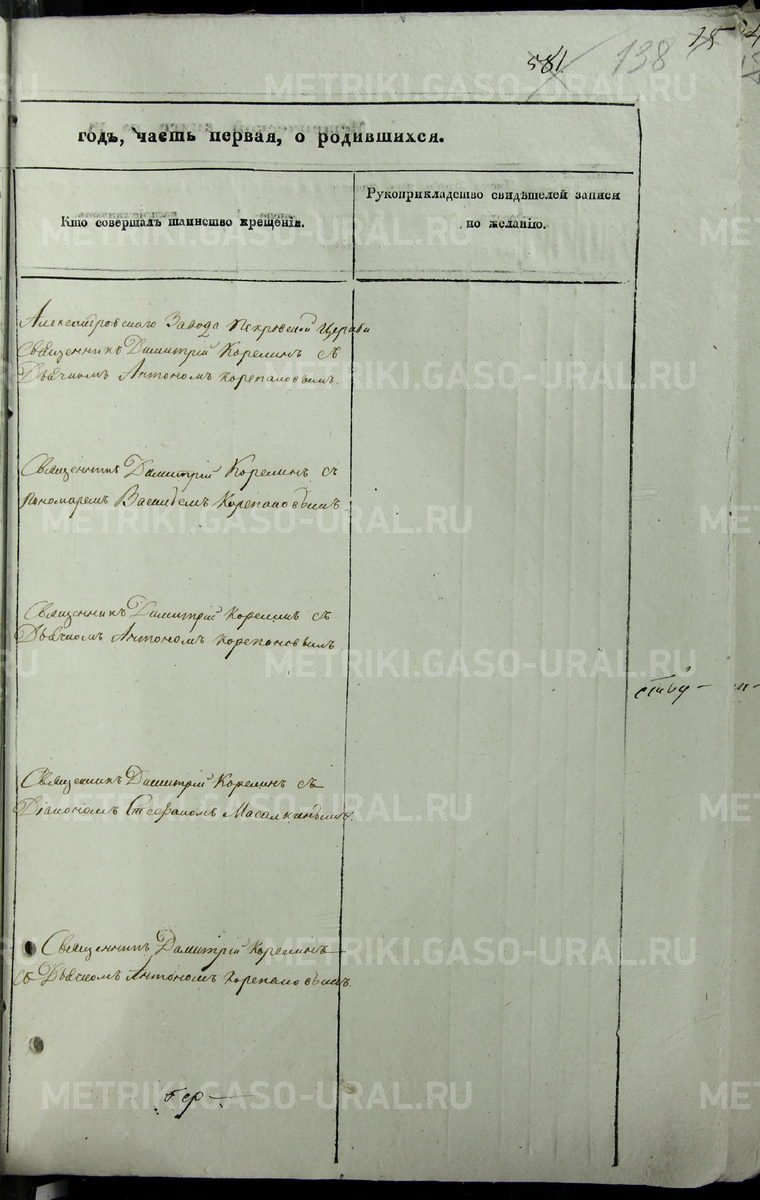 581.
138
15
годъ, часть первая, о родившихся.
Кто совершалъ таинство крещенія.
Рукоприкладство свидѣтелей записи
по желанію.
Завода Церкви
Священникъ Димитрій Корелинъ съ
Дьячкомъ Антономъ Корепановымъ.
Священникъ Димитрій Корелинъ съ
пономаремъ Васильемъ Корепановымъ
Священникъ Димитрій Корелинъ съ
Дьячкомъ Антономъ Корепановымъ
Священникъ Димитрій Корелинъ съ
Діакономъ Стефаномъ Масалкинымъ.
Священникъ Димитрій Корелинъ
съ Дьячкомъ Антономъ Корепановымъ
METRIKI.GASO-URAL.RU